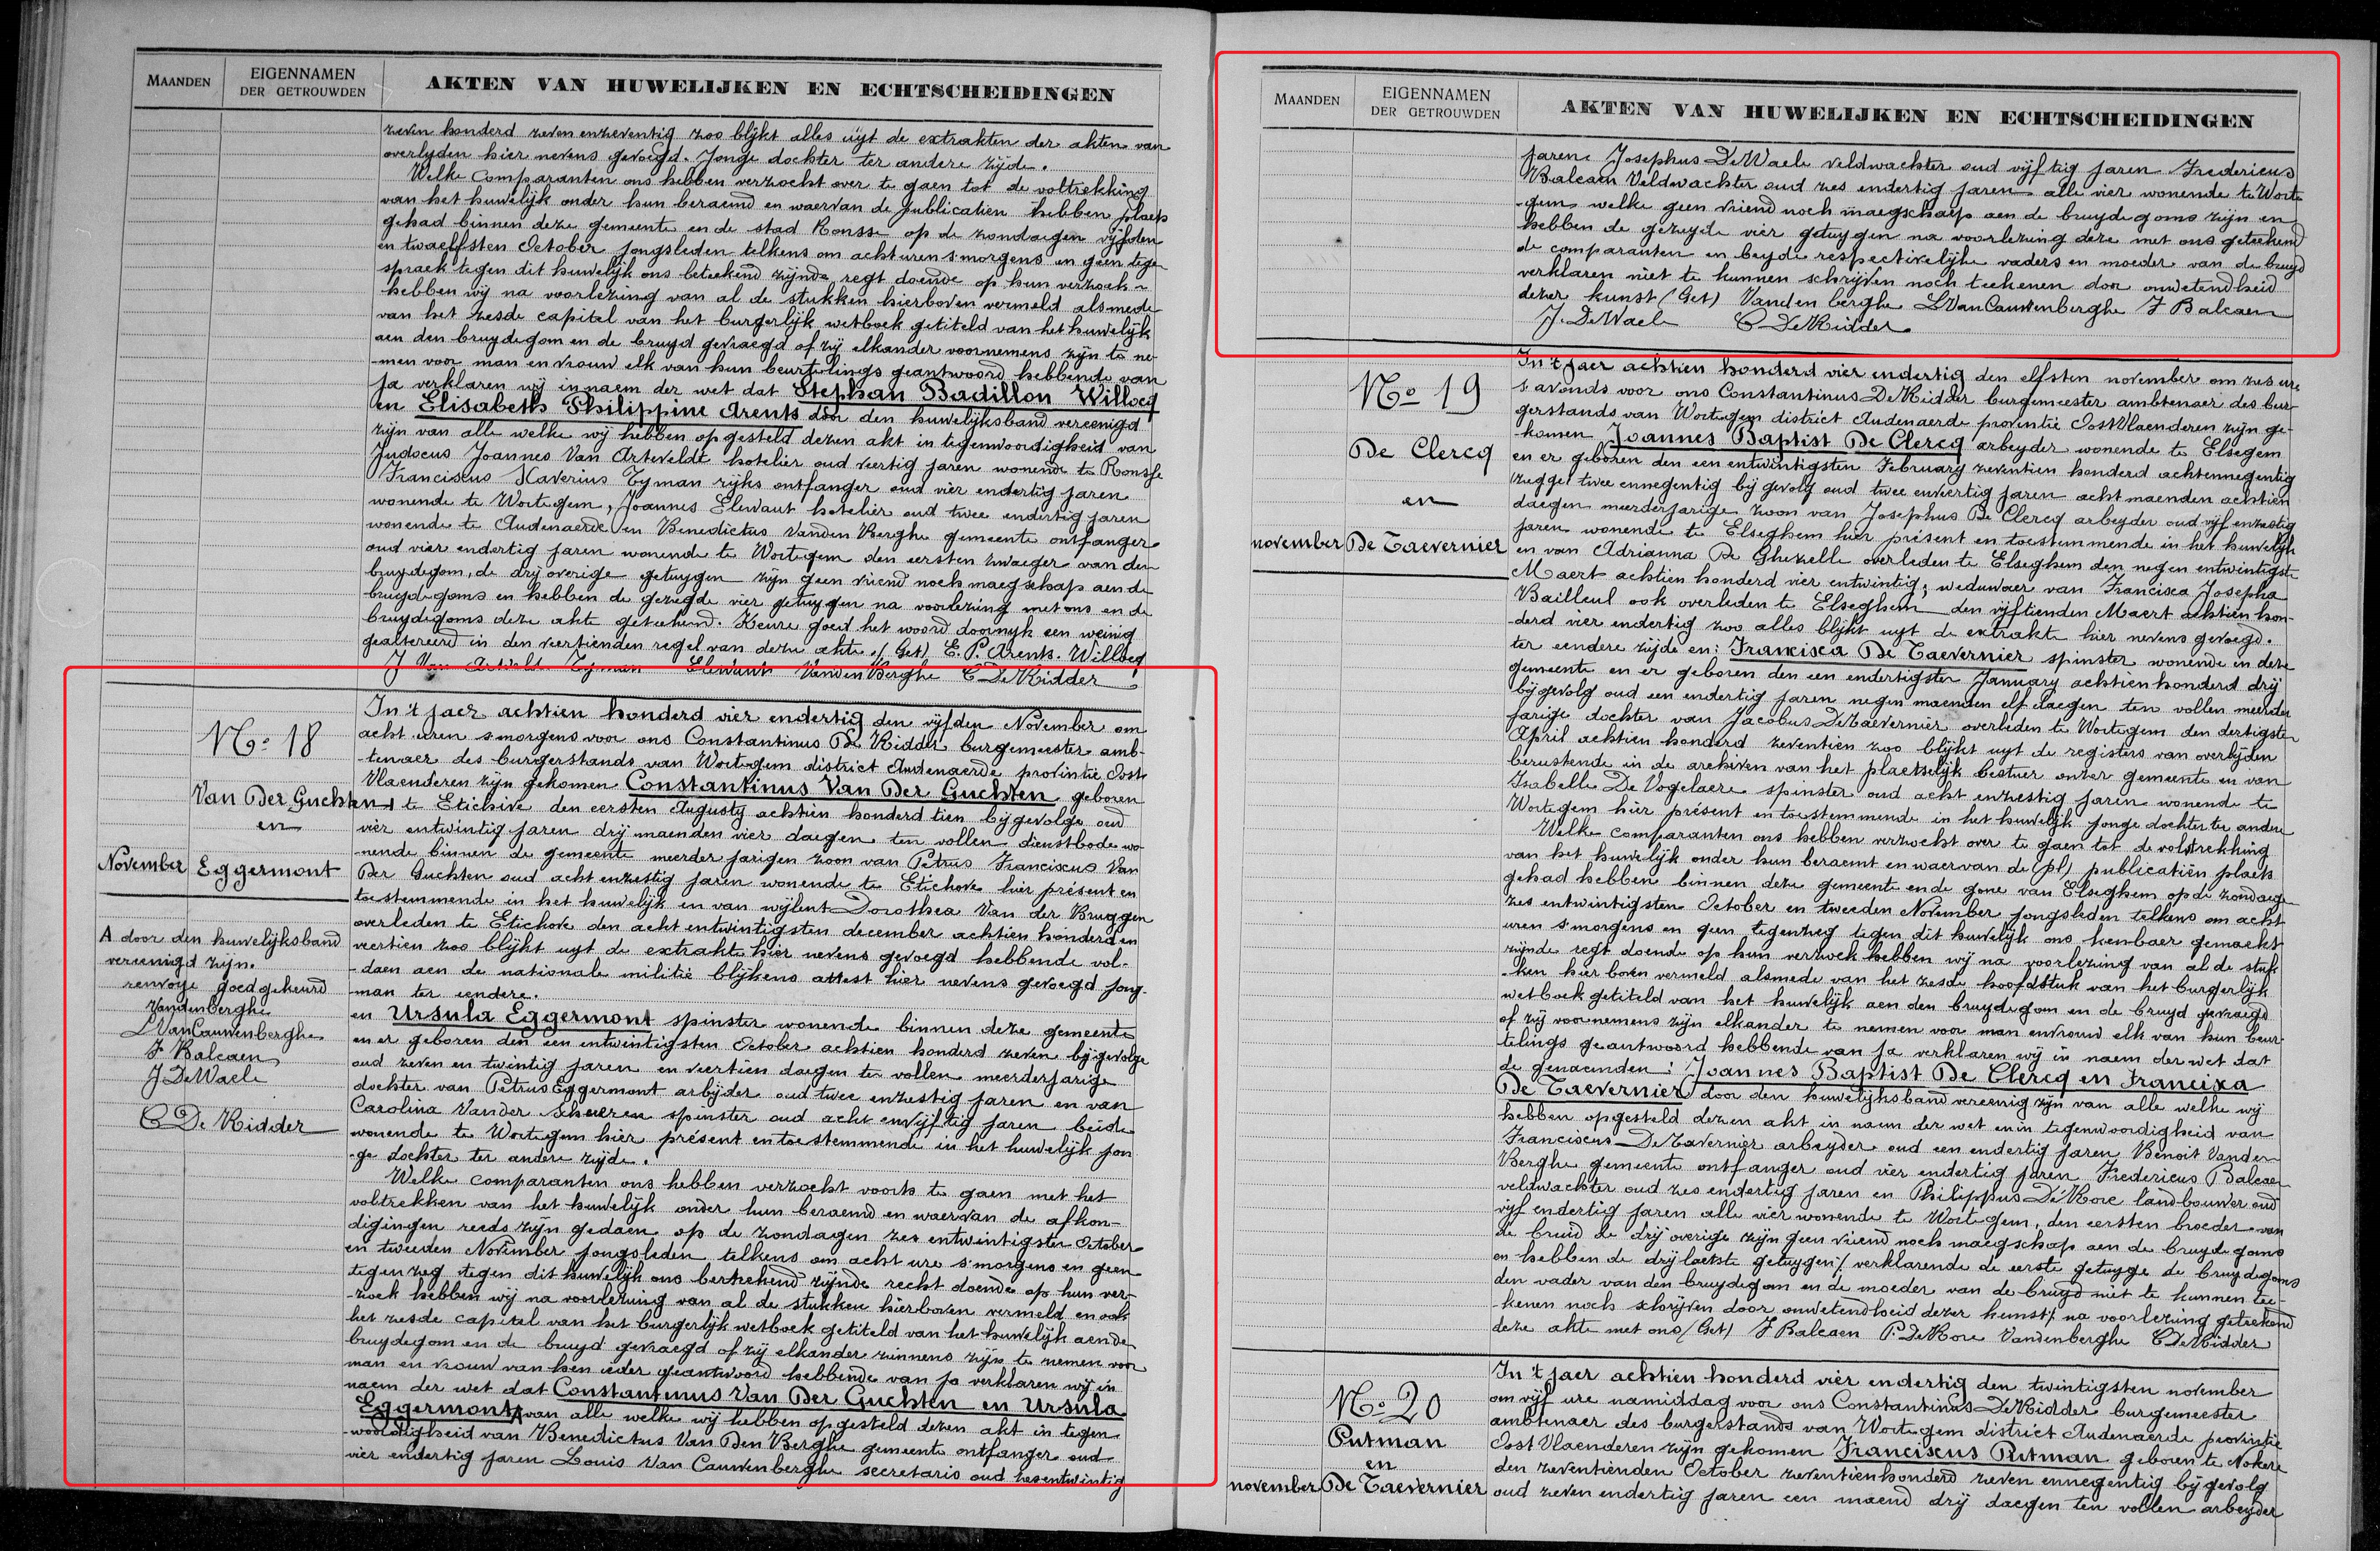 MAANDEN
EIGENNAMEN
DER GETROUWDEN
AKTEN VAN HUWELIJKEN EN ECHTSCHEIDINGEN
zeven honderd zeven enzeventig zoo blijkt alles uyt de extrakten der akten van
overlyden hier nevens gevoegd. Jonge dochter ter andere zijde.
Welke Comparanten ons hebben verzocht over te gaen tot de voltrekking
van het huwelijk onder hun beraemd en waervan de publicatien hebben plaets
gehad binnen deze gemeente en de stad Ronsse op de zondagen vijfden
en twaelfsten October jongsleden telkens om acht uren s'morgens en geen tege
spraek tegen dit huwelijk ons beteekend zijnde regt doende op hun verzoek
hebben wij na voorlezing van al de stukken hierboven vermeld alsmede
van het zesde capitel van het burgerlijk wetboek getiteld van het huwelijk
aen den bruydegom en de bruyd gevraegd of zij elkander voornemens zijn te ne-
-men voor man en vrouw elk van hun beurtelings geantwoord hebbende van
Ja verklaren wij in naem der wet dat Stephan Badillon Willocq
en Elisabeth Philippine Arents door den huwelijksband vereenigd
zijn van alle welke wij hebben opgesteld dezen akt in tegenwoordigheid van
Judocus Joannes Van Artevelde hotelier oud veertig jaren wonende te Ronsse
Franciscus Xaverius Tyman rijks ontfanger oud vier endertig jaren
wonende te Wortegem, Joannes Elewaut hotelier oud twee endertig jaren
wonende te Audenaerde en Benedictus Vanden Berghe gemeente ontfanger
oud vier endertig jaren wonende te Wortegem den eersten zwaeger van den
bruydegom, de drij overige getuygen zijn geen vriend noch maegschap aen de
bruydegoms en hebben de gezegde vier getuygen na voorlezing met ons en de
bruydegoms deze akte geteekend. Keure goed het woord doornyk een weinig
gealtereerd in den veertienden regel van deze akte. (Get) E. P. Arents. Willocq
J Van Artvelde Tyman Elewaut VandenBerghe C De Ridder
No 18
Van Der Guchten
en
November Eggermont
A door den huwelijksband
vereenigd zijn.
renvoye goed gekeurd
Vandenberghe
L VanCauwenberghe
F Balcaen
J DeWaele
C De Ridder
In 't jaer achtien honderd vier endertig den vijfden November om
acht uren s'morgens voor ons Constantinus De Ridder burgemeester amb-
-tenaer des burgerstands van Wortegem district Audenaerde provintie Oost
Vlaenderen zijn gekomen Constantinus Van Der Guchten geboren
te Etichove den eersten Augusty achtien honderd tien bijgevolge oud
vier entwintig jaren drij maenden vier daegen ten vollen dienstbode wo-
-nende binnen de gemeente meerder jarigen zoon van Petrus Franciscus Van
Der Guchten oud acht enzestig jaren wonende te Etichove hier présent en
toestemmende in het huwelijk en van wijlent Dorothea Van der Bruggen
overleden te Etichove den acht entwintigsten december achtien honderd en
veertien zoo blijkt uyt de extrakte hier nevens gevoegd hebbende vol-
-daen aen de nationale militie blijkens attest hier nevens gevoegd jong-
-man ter eendere.
en Ursula Eggermont spinster wonende binnen deze gemeente
en er geboren den een entwintigsten October achtien honderd zeven bijgevolge
oud zeven en twintig jaren en veertien daegen ten vollen meerderjarige
dochter van Petrus Eggermont arbijder oud twee enzestig jaren en van
Carolina Vander Schueren spinster oud acht envijftig jaren beide
wonende te Wortegem hier présent en toestemmende in het huwelijk jon
-ge dochter ter andere zijde.
Welke comparanten ons hebben verzocht voorts te gaen met het
voltrekken van het huwelijk onder hun beraemd en waervan de afkon-
digingen reeds zijn gedaen op de zondagen zes entwintigsten October
en tweeden November jongsleden telkens om acht ure s'morgens en geen
tegenzeg tegen dit huwelijk ons berteekend zijnde recht doende op hun ver-
-zoek hebben wij na voorlezing van al de stukken hierboven vermeld en ook
het zesde capitel van het burgerlijk wetboek getiteld van het huwelijk aende
bruydegom en de bruyd gevraegd of zij elkander zinnens zijn te nemen voor
man en vrouw van hen ieder geantwoord hebbende van ja verklaren wij in
naem der wet dat Constantinus Van Der Guchten en Ursula
Eggermont A van alle welke wij hebben opgesteld dezen akt in tegen
-woordigheid van Benedictus Van Den Berghe gemeente ontfanger oud
vier endertig jaren Louis Van Cauwenberghe secretaris oud zesentwintig
MAANDEN
EIGENNAMEN
DER GETROUWDEN
AKTEN VAN HUWELIJKEN EN ECHTSCHEIDINGEN
jaren Josephus DeWaele veldwachter oud vijftig jaren Fredericus
Balcaen Veldwachter oud zes endertig jaren alle vier wonende te Worte
-gem welke geen vriend noch maegschaep aen de bruydegoms zijn en
hebben de gezeyde vier getuygen na voorlezing deze met ons geteekend
de comparanten en beyde respectivelijke vaders en moeder van de bruyd
verklaren niet te kunnen schrijven noch teekenen door onwetendheid
dezer kunst (Get) Vanden berghe L VanCauwenberghe F Balcaen
J. DeWaele C DeRidder
No 19
De Clercq
en
november De Taevernier
In 't jaer achtien honderd vier endertig den elfsten november om zes ure
s'avonds voor ons Constantinus DeRidder burgemeester ambtenaer des bur-
gerstands van Wortegem district Audenaerde provintie OostVlaenderen zijn ge-
-komen Joannes Baptist De Clercq arbeyder wonende te Elsegem
en er geboren den een entwintigsten February zeventien honderd achtennegentig
(zegge) twee ennegentig bij gevolg oud twee enveertig jaren acht maenden achtien
daegen meerderjarige zoon van Josephus De Clercq arbeyder oud vijf enzestig
jaren wonende te Elseghem hier présent en toestemmende in het huwelijk
en van Adrianna De Ghezelle overleden te Elseghem den negen entwintigste
Maert achtien honderd vier entwintig; weduwaer van Francisca Josepha
Bailleul ook overleden te Elseghem den vijftienden Maert achtien hon-
-derd vier endertig zoo alles blijkt uyt de extrakte hier nevens gevoegd.
ter eendere zijde en: Francisca De Taevernier spinster wonende in deze
gemeente en er geboren den een endertigsten January achtien honderd drij
bijgevolg oud een endertig jaren negen maenden elf daegen ten vollen meerder
jarige dochter van Jacobus DeTaevernier overleden te Wortegem den dertigsten
April achtien honderd zeventien zoo blijkt uyt de registers van overlijden
berustende in de archiven van het plaetselijk bestier onzer gemeente en van
Isabelle De Vogelaere spinster oud acht enzestig jaren wonende te
Wortegem hier présent en toestemmende in het huwelijk jonge dochter ter andere
Welke comparanten ons hebben verzocht over te gaen tot de voltrekking
van het huwelijk onder hun beraemt en waervan de (pl) publicatiën plaets
gehad hebben binnen deze gemeente en de gone van Elseghem op de zondage
zes entwintigsten October en tweeden November jongsleden telkens om acht
uren s'morgens en geen tegenzeg tegen dit huwelijk ons kenbaer gemaekt
zijnde regt doende op hun verzoek hebben wij na voorlezing van al de stuk
-ken hier boven vermeld alsmede van het zesde hoofdstuk van het burgerlijk
wetboek getiteld van het huwelijk aen den bruydegom en de bruyd gevraegd
of zij voornemens zijn elkander te nemen voor man envrouw elk van hun beur-
telings geantwoord hebbende van ja verklaren wij in naem der wet dat
de genaemden: Joannes Baptist De Clercq en Francixa
De Taevernier door den huwelijksband vereenig zijn van alle welke wij
hebben opgesteld dezen akt in naem der wet en in tegenwoordigheid van
Franciscus DeTavernier arbeyder oud een endertig jaren Benoit Vanden
Berghe gemeente ontfanger oud vier endertig jaren Fredericus Balcaen
veldwachter oud zes endertig jaren en Philippus De Kore landbouwer oud
vijf endertig jaren alle vier wonende te Wortegem, den eersten broeder van
de bruid de drij overige zijn geen vriend noch maegschap aen de bruydegoms
en hebben de drij laetste getuygen /. verklarende de eerste getuyge de bruydegoms
den vader van den bruydegom en de moeder van de bruyd niet te kunnen tee-
-kenen noch schrijven door onwetendheid dezer kunst /. na voorlezing geteekend
deze akte met ons (Get) F Balcaen P. DeKore Vandenberghe C DeRidder
No 20
Putman
en
november De Taevernier
In 't jaer achtien honderd vier endertig den twintigsten november
om vijf ure namiddag voor ons Constantinus DeRidder burgemeester
ambtenaer des burgerstands van Wortegem district Audenaerde provintie
Oost Vlaenderen zijn gekomen Franciscus Putman geboren te Nokere
den zeventienden October zeventienhonderd zeven ennegentig bij gevolg
oud zeven endertig jaren een maend drij daegen ten vollen arbeyder